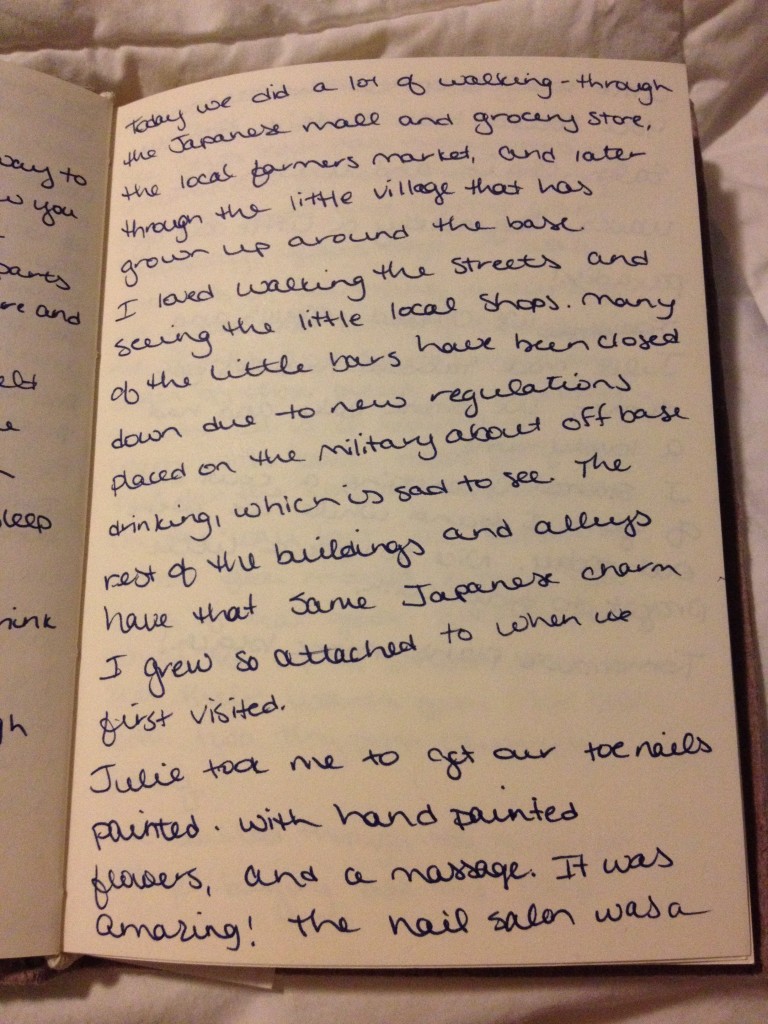 way to
you
parts
re and
elt
e
sleep
hink
gh
Today we did a lot of walking - through
the Japanese mall and grocery store,
the local farmers market, and later
through the little village that has
grown up around the base.
I loved walking the streets and
seeing the little local shops. Many
of the little bars have been closed
down due to new regulations
placed on the military about off base
drinking, which is sad to see. The
rest of the buildings and alleys
have that same Japanese charm
I grew so attached to when we
first visited.
Julie took me to get our toenails
painted. With hand painted
flowers, and a massage. It was
amazing! The nail salon was a